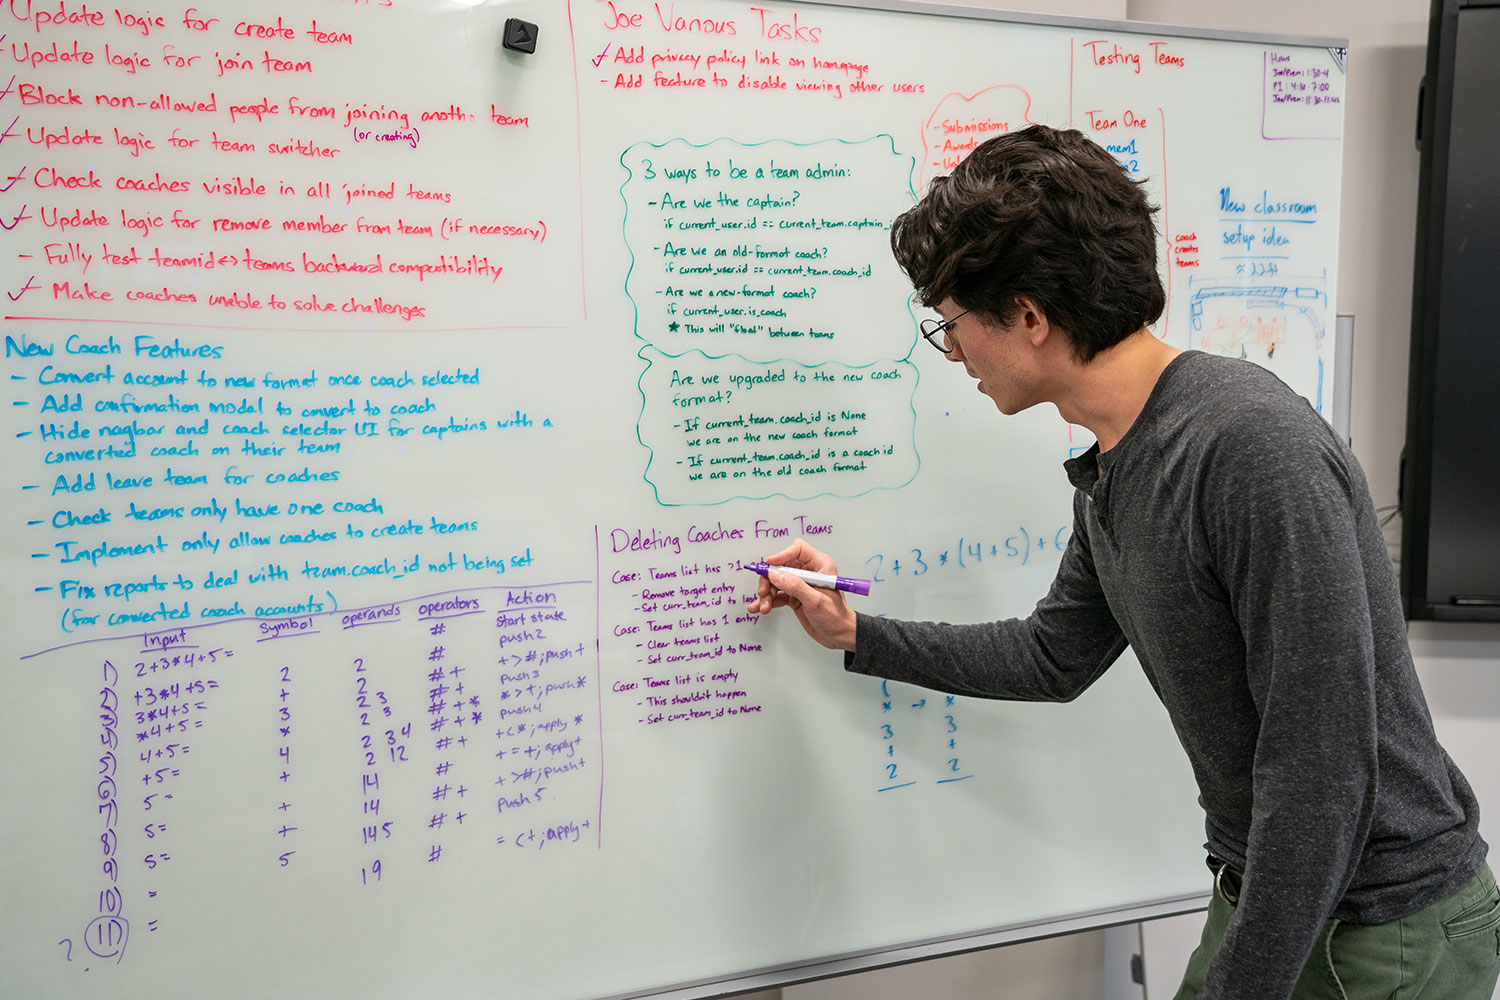 Update logic for create team
Update logic for join team
Block non-allowed people from joining anoth. team
(or creating)
Update logic for team switcher
Check coaches visible in all joined teams
Update logic for remove member from team (if necessary)
- Fully test teamid<->teams backward compatibility
Make coaches unable to solve challenges
New Coach Features
- Convert account to new format once coach selected
- Add confirmation modal to convert to coach
- Hide nagbar and coach selector UI for captains with a
converted coach on their team
- Add leave team for coaches
- Check teams only have one coach
- Implement only allow coaches to create teams
- Fix reports to deal with team.coach_id not being set
(for converted coach accounts)
Input Symbol operands operators Action
1) 2+3*4+5= # start state
2) +3*4+5= 2 2 # push 2
3) 3*4+5= + 2 # + + > #; push +
4) *4+5= 3 2 3 # + push 3
5) 4+5= * 2 3 # + * * > +; push *
6) +5= 4 2 3 4 # + * push 4
7) 5= + 2 12 # + + < *; apply *
8) 5= + 14 # + = +; apply +
9) 5= + 14 # + + > #; push +
10) = 5 14 5 # + push 5
11) = 19 # = < +; apply +
?
Joe Various Tasks
Add privacy policy link on homepage
- Add feature to disable viewing other users
- Submissions
3 ways to be a team admin:
- Are we the captain?
if current_user.id == current_team.captain_
- Are we an old-format coach?
if current_user.id == current_team.coach_id
- Are we a new-format coach?
if current_user.is_coach
* This will "float" between teams
Are we upgraded to the new coach
format?
- If current_team.coach_id is None
we are on the new coach format
- If current_team.coach_id is a coach id
we are on the old coach format
Deleting Coaches From Teams
Case: Teams list has >1
- Remove target entry
- Set curr_team_id to last
Case: Teams list has 1 entry
- Clear teams list
- Set curr_team_id to None
Case: Teams list is empty
- This shouldn't happen
- Set curr_team_id to None
2+3*(4+5)+6
* → *
3 3
+ +
2 2
Testing Teams
Team One
mem1
2
coach
creates
teams
Hours
New classroom
setup idea
≈ 22ft